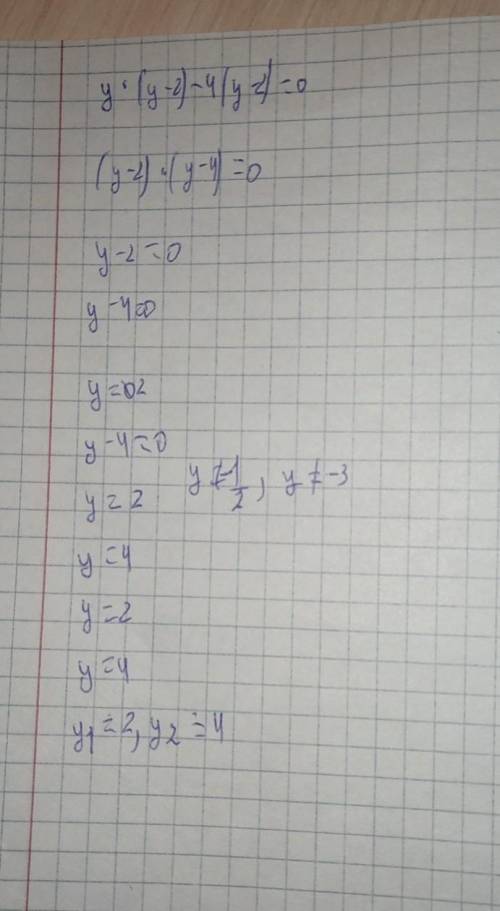 y · (y-2) - 4(y-2) = 0
(y-2) · (y-4) = 0
y-2=0
y-4=0
y=02
y-4=0
y≠-1/2, y≠-3
y=2
y=4
y=2
y=4
y1=2, y2=4